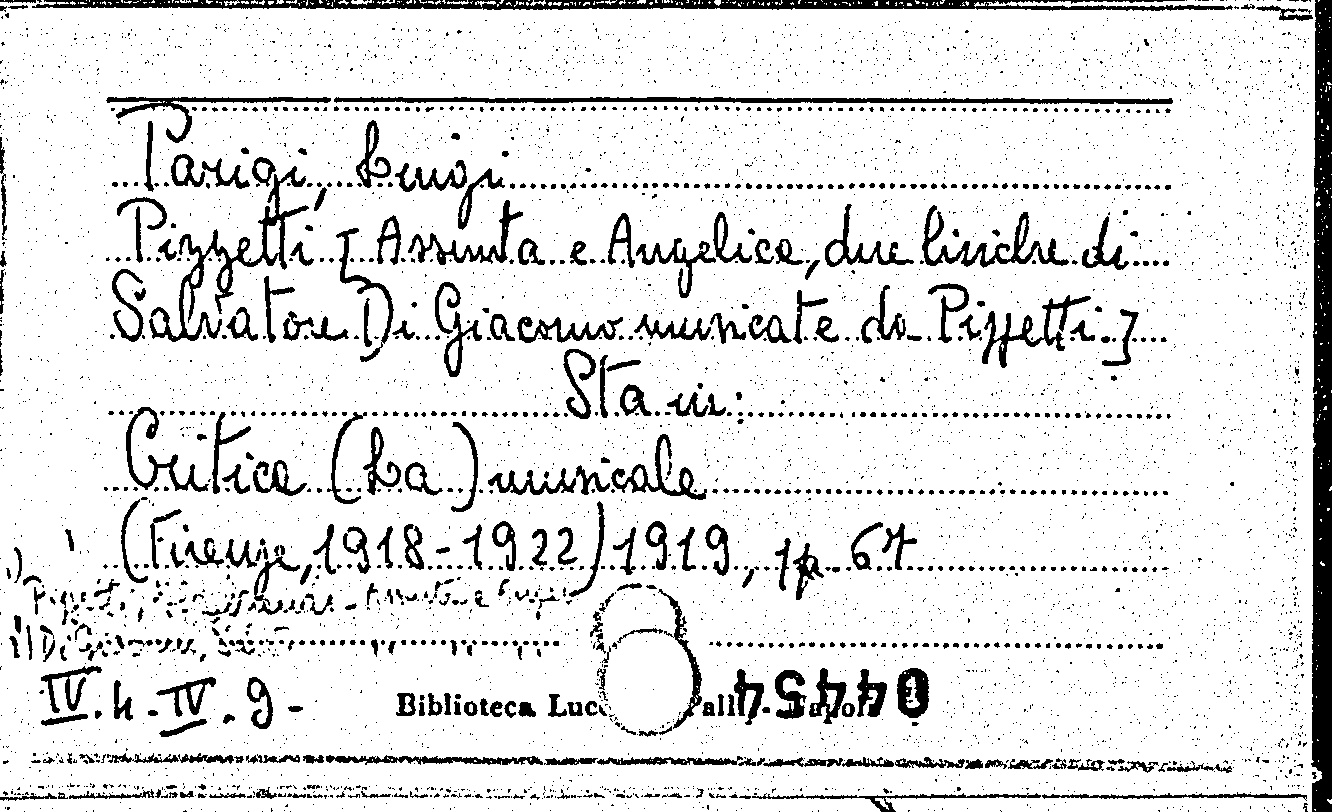 Parigi, Luigi
Pizzetti [Assunta e Angelica, due liriche di
Salvatore Di Giacomo musicate da Pizzetti.]
Sta in:
Critica (La) musicale
(Firenze, 1918-1922) 1919, p. 67
i) Pizzetti, Assunta e
ii) Di Giacomo, " " "
IV.4.-IV.9-
Biblioteca Napoli
04454